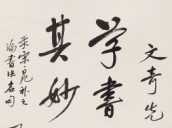 文奇先
学书
其妙
宋·晁补之
论书法名句